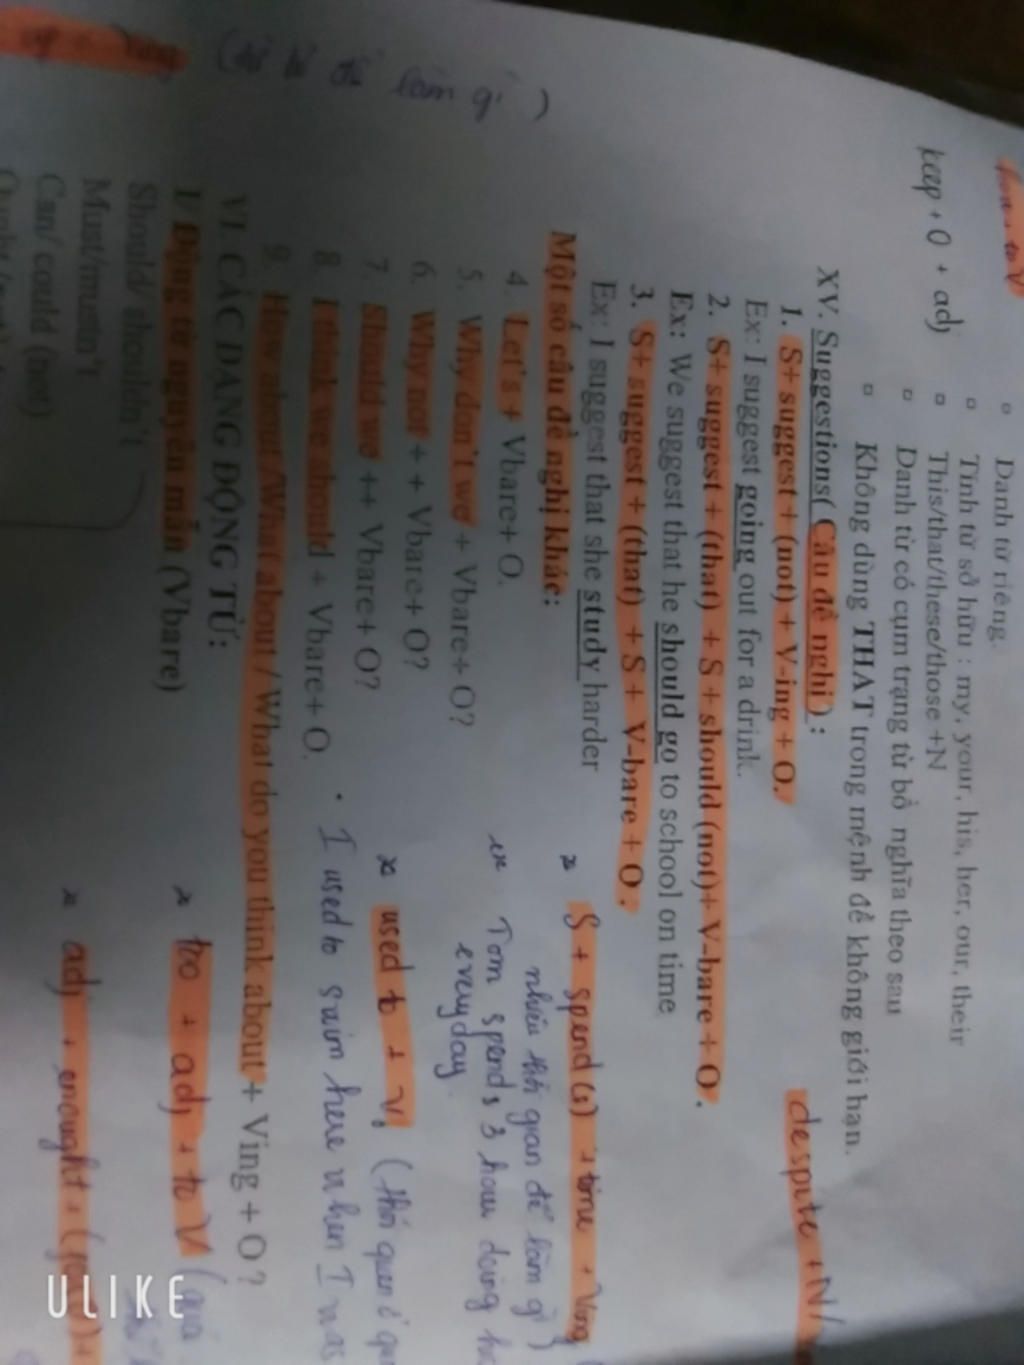 Danh từ riêng.
Tính từ sở hữu : my, your, his, her, our, their
This/that/these/those +N
Danh từ có cụm trạng từ bổ nghĩa theo sau
Không dùng THAT trong mệnh đề không giới hạn.
keep + O + adj
despite + N/
XV. Suggestions( Câu đề nghị ) :
1. S+ suggest + (not) + V-ing + O.
Ex: I suggest going out for a drink.
2. S+ suggest + (that) + S + should (not)+ V-bare + O.
Ex: We suggest that he should go to school on time
3. S+ suggest + (that) + S + V-bare + O.
Ex: I suggest that she study harder
Một số câu đề nghị khác:
4. Let's + Vbare+ O.
5. Why don't we + Vbare+ O?
6. Why not + + Vbare+ O?
7. Should we ++ Vbare+ O?
8. I think we should + Vbare+ O.
9. How about /What about / What do you think about + Ving + O ?
S + spend(s) + time + Ving
nhiêu thời gian để làm gì )
ex Tom spends 3 hour doing
everyday
used to + V (thói quen ở
I used to swim here when I was
too + adj + to V (quá
adj + enough +
VI. CÁC DẠNG ĐỘNG TỪ:
1/ Động từ nguyên mẫn (Vbare)
Should/ shouldn't
Must/mustn't
Can/ could (not)
làm gì )
ULIKE